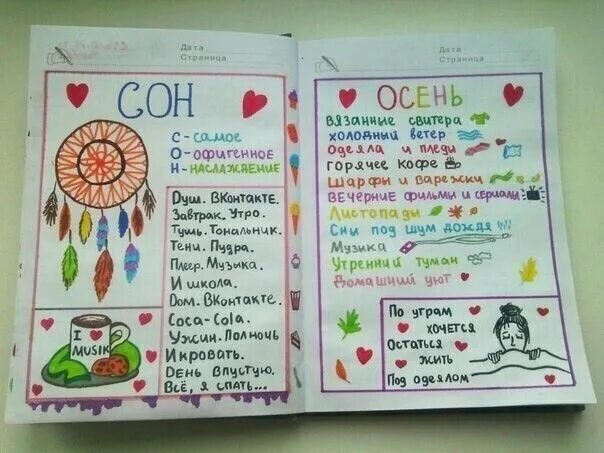 Дата
Страница
СОН
С - самое
О - офигенное
Н - наслаждение
Душ. ВКонтакте.
Завтрак. Утро.
Тушь. Тональник.
Тени. Пудра.
Плеер. Музыка.
И школа.
Дом. ВКонтакте.
Coca-Cola.
Ужин. Полночь
И кровать.
День впустую.
Всё, я спать...
I ♥
MUSIK
Дата
Страница
ОСЕНЬ
Вязанные свитера
холодный ветер
Одеяла и пледы
горячее кофе
Шарфы и варежки
Вечерние фильмы и сериалы
Листопады
Сны под шум дождя
Музыка
Утренний туман
Домашний уют
По утрам
хочется
Остаться
жить
Под одеялом